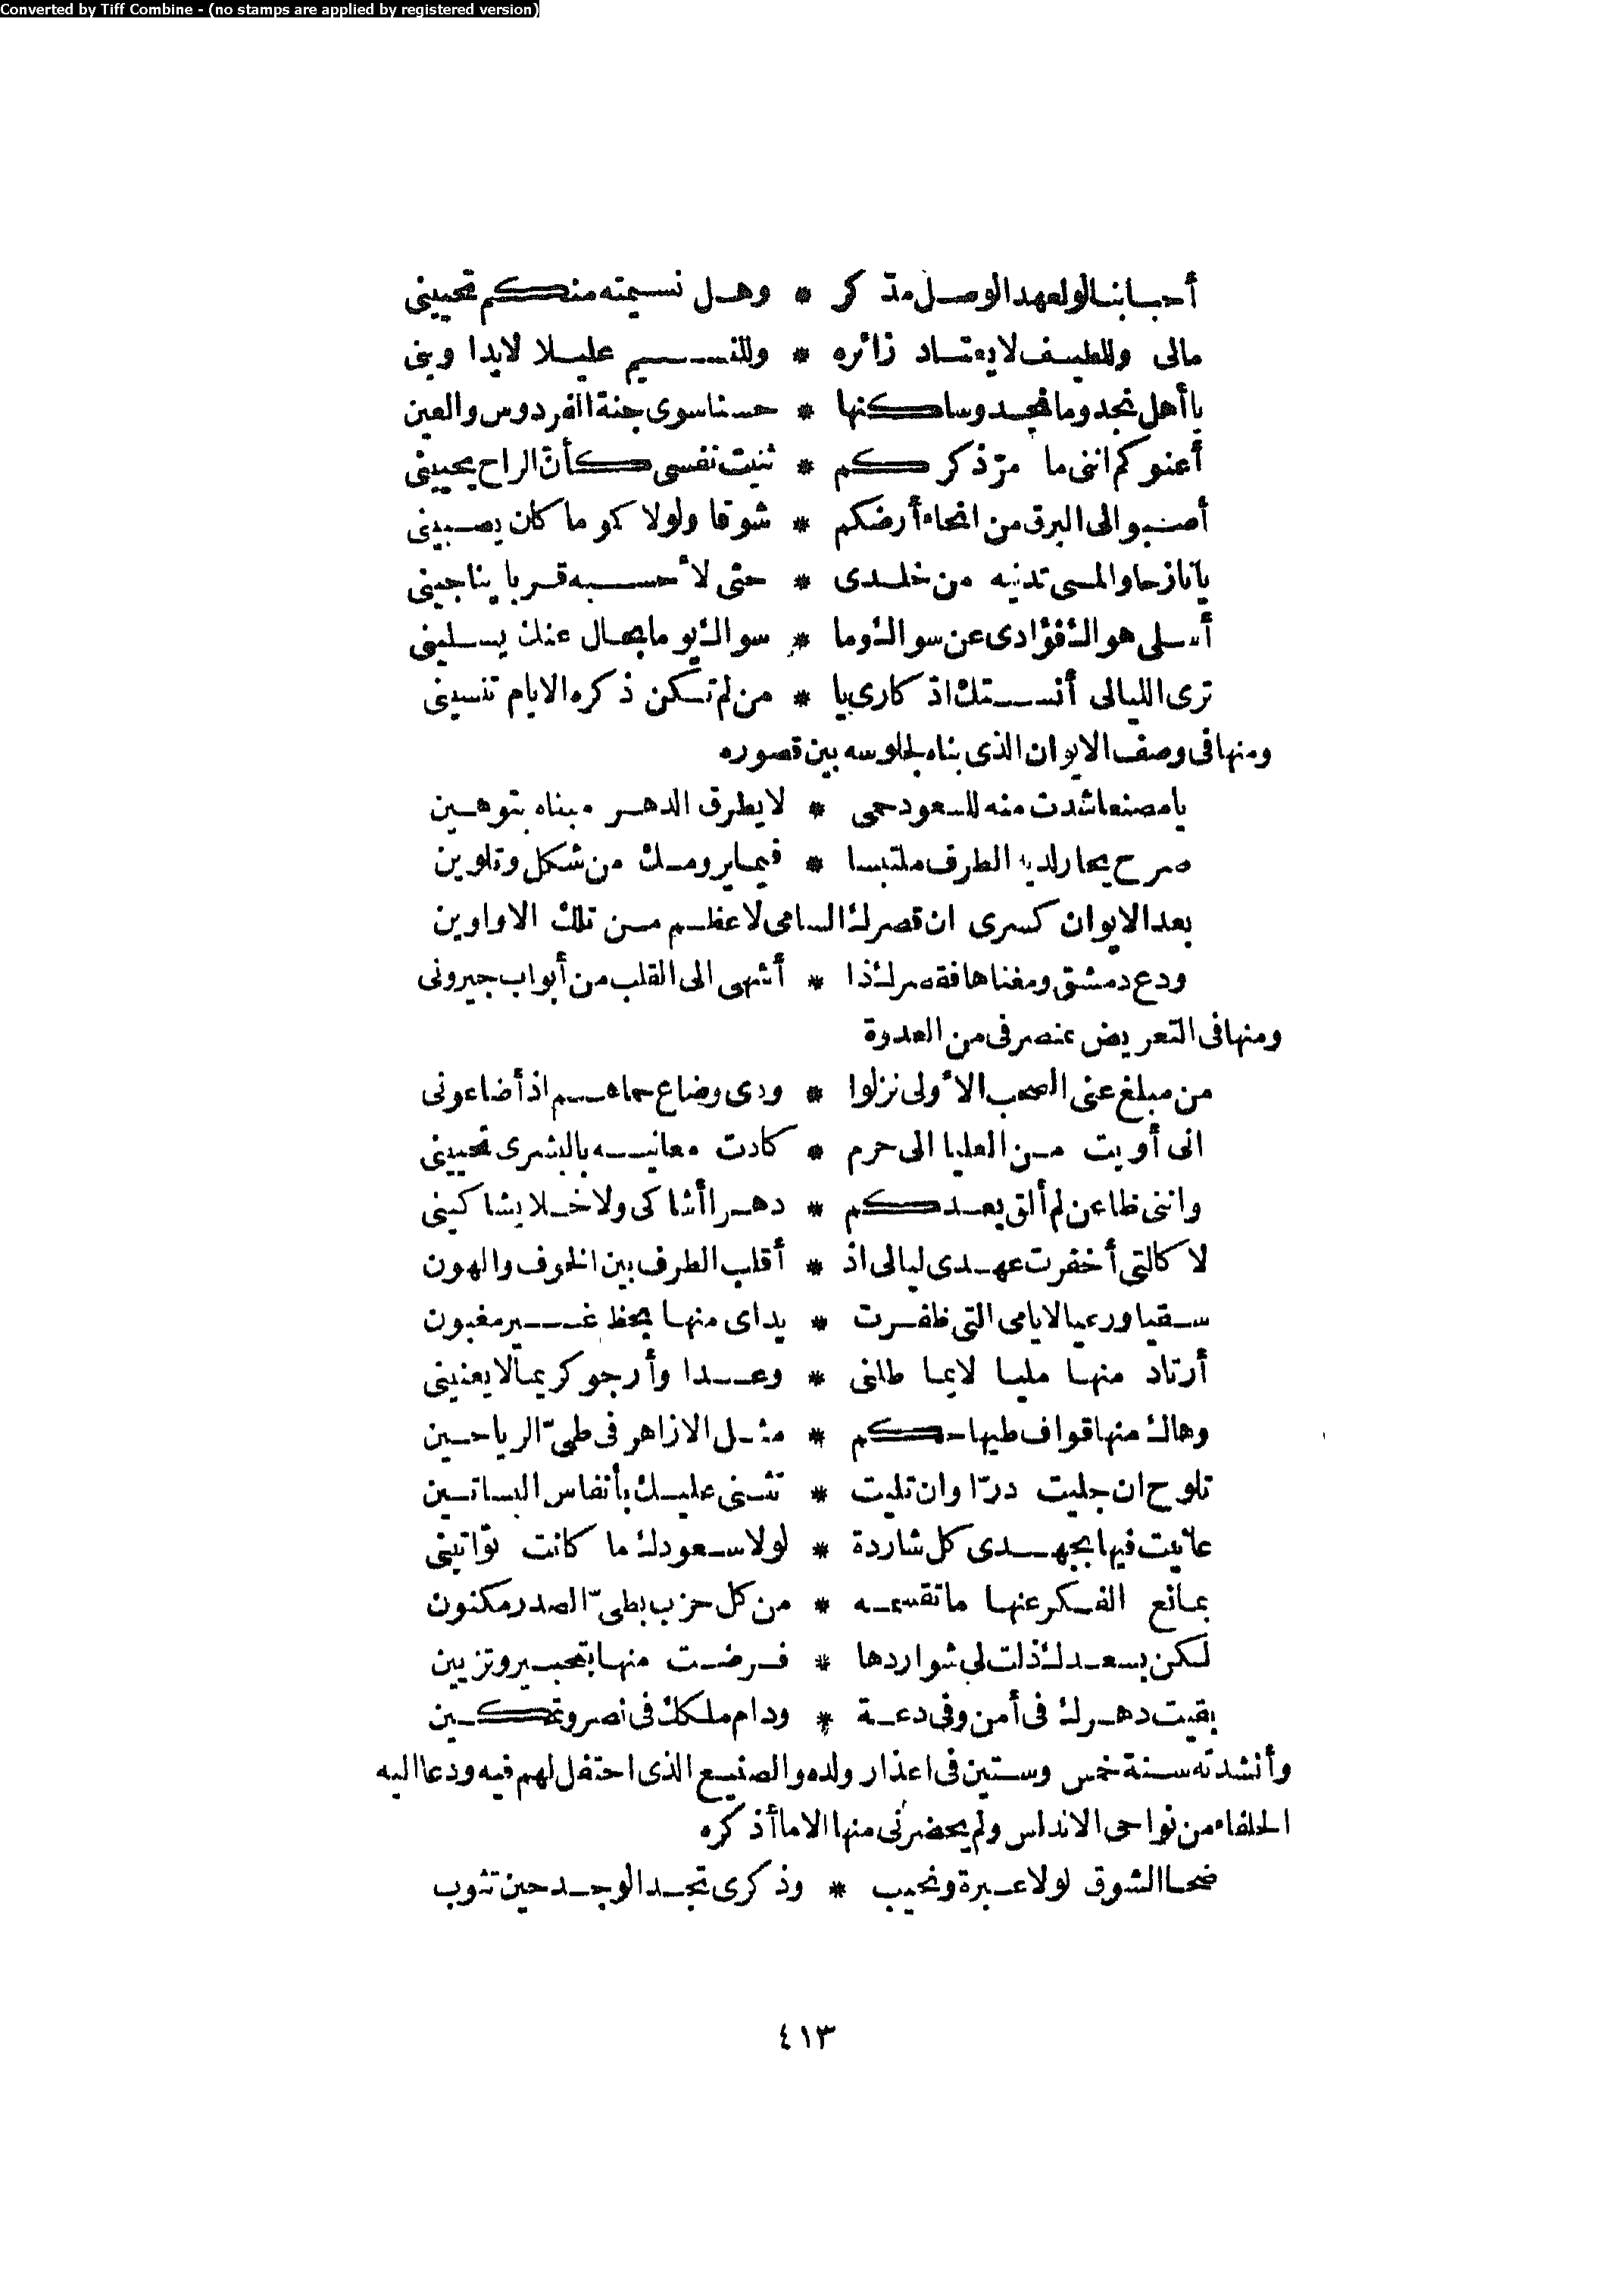 Converted by Tiff Combine - (no stamps are applied by registered version)
أحبابنا لو لعهد الوصل مدّ كر * وهل نسيمته منكم تحييني
مالى وللطيف لا يعتاد زائره * وللنسيم عليلا لايدا وينى
ياأهل نجد وما نجد وساكنها * حسنا سوى جنة الفردوس والعين
أعندكم اننى ما مرّ ذكركم * ثنيت نفسى كأن الراح يحيينى
أصبو الى البرق من انحاء أرضكم * شوقا ولولاكمو ما كان يصبينى
يانازحا والمنى تدنيه من خلدى * حتى لأحسبه قربا يناجينى
أسلى هواك فؤادى عن سواك وما * سواك يوما بحال عنك يسلينى
ترى الليالى أنستك اذ كارى يا * من لم تكن ذكره الايام تنسينى
ومنها فى وصف الايوان الذى بناه لجلوسه بين قصوره
يامصنعا شدت منه للسعود حمى * لايطرق الدهر مبناه بتوهين
صرح يحار لديه الطرف ملتبسا * فيما يرومك من شكل وتلوين
بعد الايوان كسرى ان قصرك السامى لاعظم من تلك الاواوين
ودع دمشق ومغناها فقصرك ذا * أشهى الى القلب من أبواب جيرونى
ومنها فى التعريض بمنصرفى من العدوة
من مبلغ عنى الصحب الأولى نزلوا * ودى وضاع حماهم اذ أضاعونى
انى أويت من العليا الى حرم * كادت معانيه بالبشرى تحيينى
واننى ظاعن لم ألق بعدكم * دهرا أشاكى ولا خلا يشاكينى
لا كالتى أخفرت عهدى ليالى اذ * أقلب الطرف بين الخوف والهون
سقيا ورعيا لايامى التى ظفرت * يداى منها بحظ غير مغبون
أرتاد منها مليا لايما طلنى * وعدا وأرجو كريما لا يعنينى
وهاك منها قواف طيها حكم * مثل الازاهر فى طىّ الرياحين
تلوح ان جليت درّا وان تليت * تثنى عليك بأنفاس البساتين
عانيت فيها بجهدى كل شاردة * لولا سعودك ما كانت تواتينى
يمانع الفكر عنها ما تقسمه * من كل حزب بطىّ الصدر مكنون
لكن بسعدك ذلت لى شواردها * فرضت منها بتحبير وتزيين
بقيت دهرك فى أمن وفى دعة * ودام ملكك فى نصر وتمكين
وأنشدته سنة خمس وستين فى اعذار ولده والصنيع الذى احتفل لهم فيه ودعا اليه
الخلفاء من نواحى الاندلس ولم يحضرنى منها الا ما أذكره
ضحا الشوق لولا عبرة ونحيب * وذكرى تجد الوجد حين تثوب
٤١٣